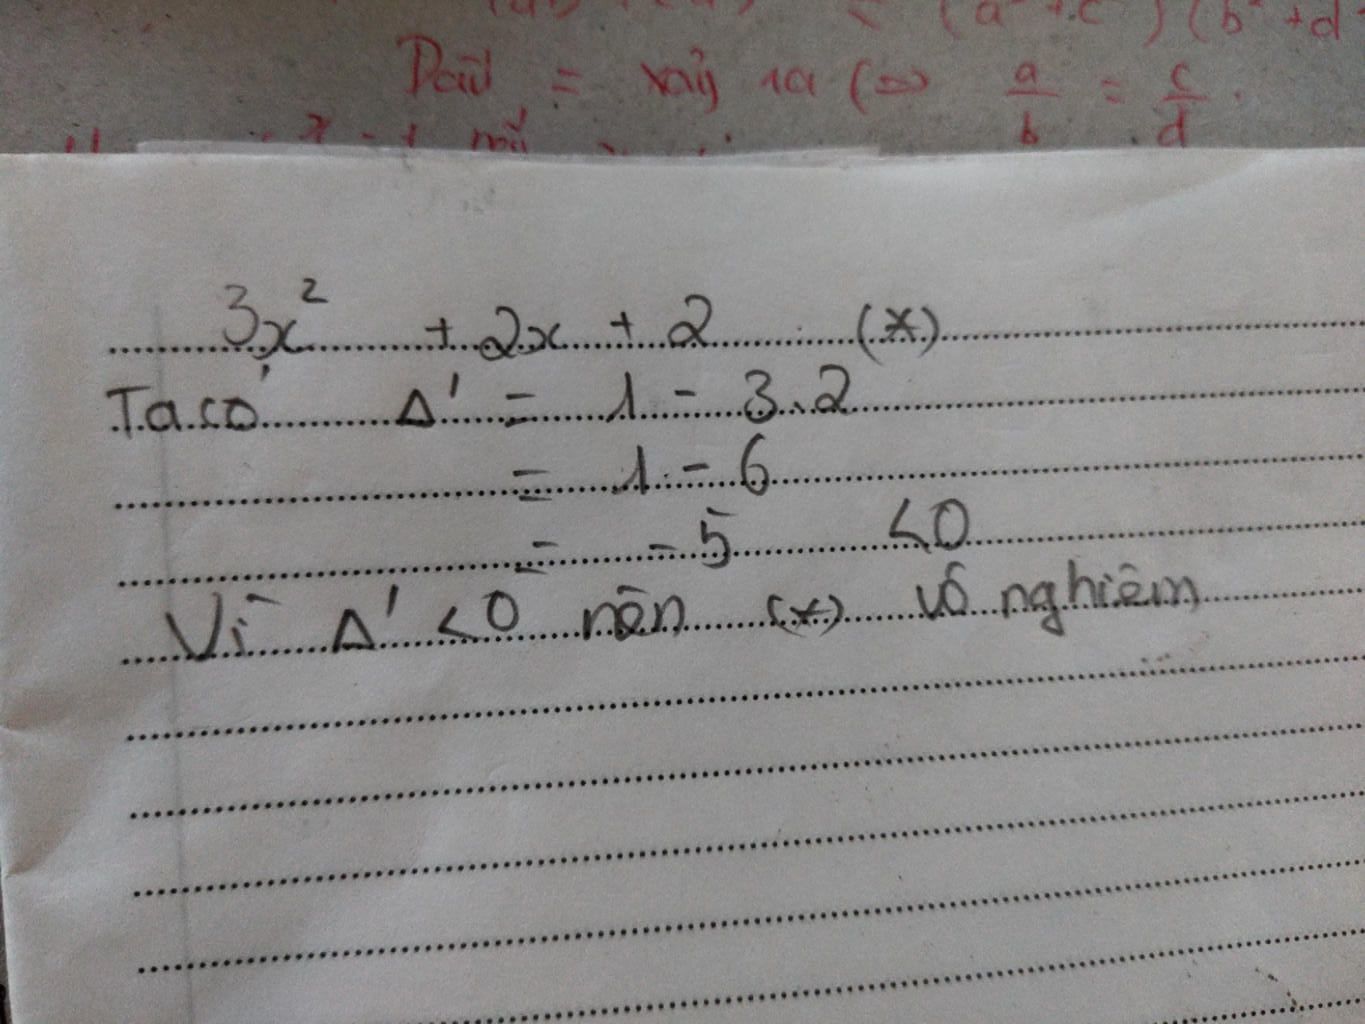 = (a² + c²) (b² + d²
Dấu = xảy ra (⇔ a/b = c/d.
3x² + 2x + 2 (*)
Ta có Δ' = 1 - 3.2
= 1 - 6
= -5 < 0
Vì Δ' < 0 nên (*) vô nghiêm